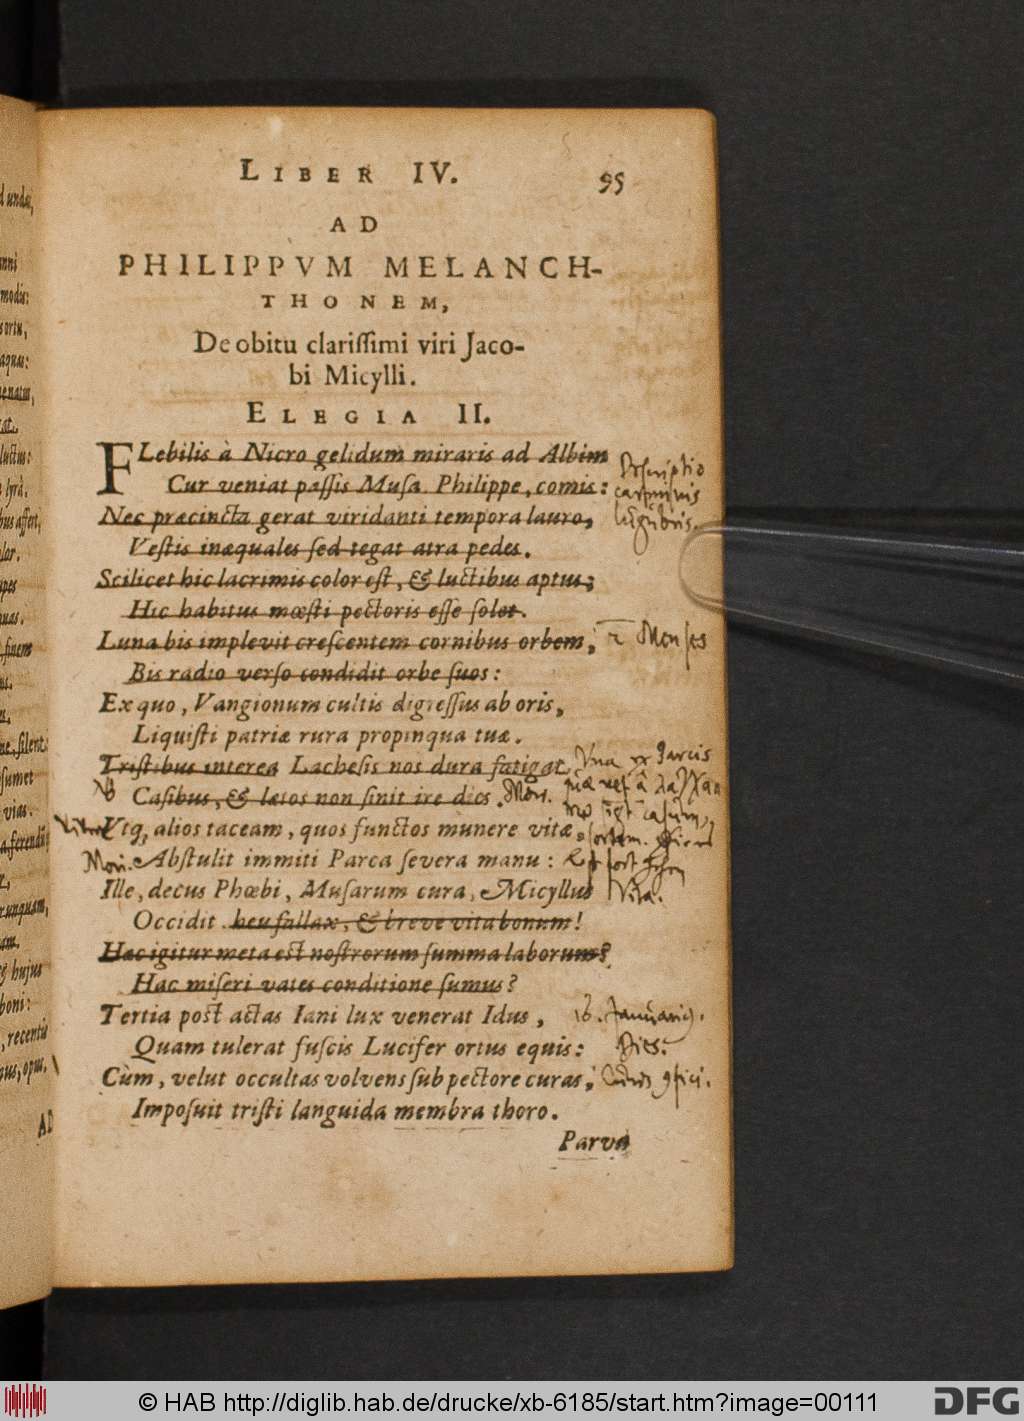 LIBER IV.
95
AD
PHILIPPVM MELANCH-
THONEM,
De obitu clarissimi viri Jaco-
bi Micylli.
ELEGIA II.
FLebilis à Nicro gelidum miraris ad Albim
Cur veniat passis Musa Philippe, comis:
Descriptio
carminis
lugubris.
Nec præcincta gerat viridanti tempora lauro,
Vestis inæquales sed tegat atra pedes.
Scilicet hic lacrimis color est, & luctibus aptus;
Hic habitus mœsti pectoris esse solet.
Luna bis implevit crescentem cornibus orbem,
Menses
Bis radio verso condidit orbe suos:
Ex quo, Vangionum cultis digressus ab oris,
Liquisti patriæ rura propinqua tuæ.
Tristibus interea Lachesis nos dura fatigat
Una Parcis
Casibus, & lætos non sinit ire dies.
Mors.
Vtq; alios taceam, quos functos munere vitæ
Abstulit immiti Parca severa manu:
Mori.
Ille, decus Phœbi, Musarum cura, Micyllus
Vita.
Occidit heu fallax, & breve vita bonum!
Hæc igitur meta est nostrorum summa laborum?
Hac miseri vates conditione sumus?
Tertia post actas Iani lux venerat Idus,
16. Januarij.
Quam tulerat fuscis Lucifer ortus equis:
Dies.
Cùm, velut occultas volvens sub pectore curas,
Imposuit tristi languida membra thoro.
Parva
d undas,
anni
modis:
sortu,
aquas:
enatur,
luctus:
lyrâ.
bus affert,
hujus
boni:
, recentis
opus.
AD
© HAB http://diglib.hab.de/drucke/xb-6185/start.htm?image=00111
DFG